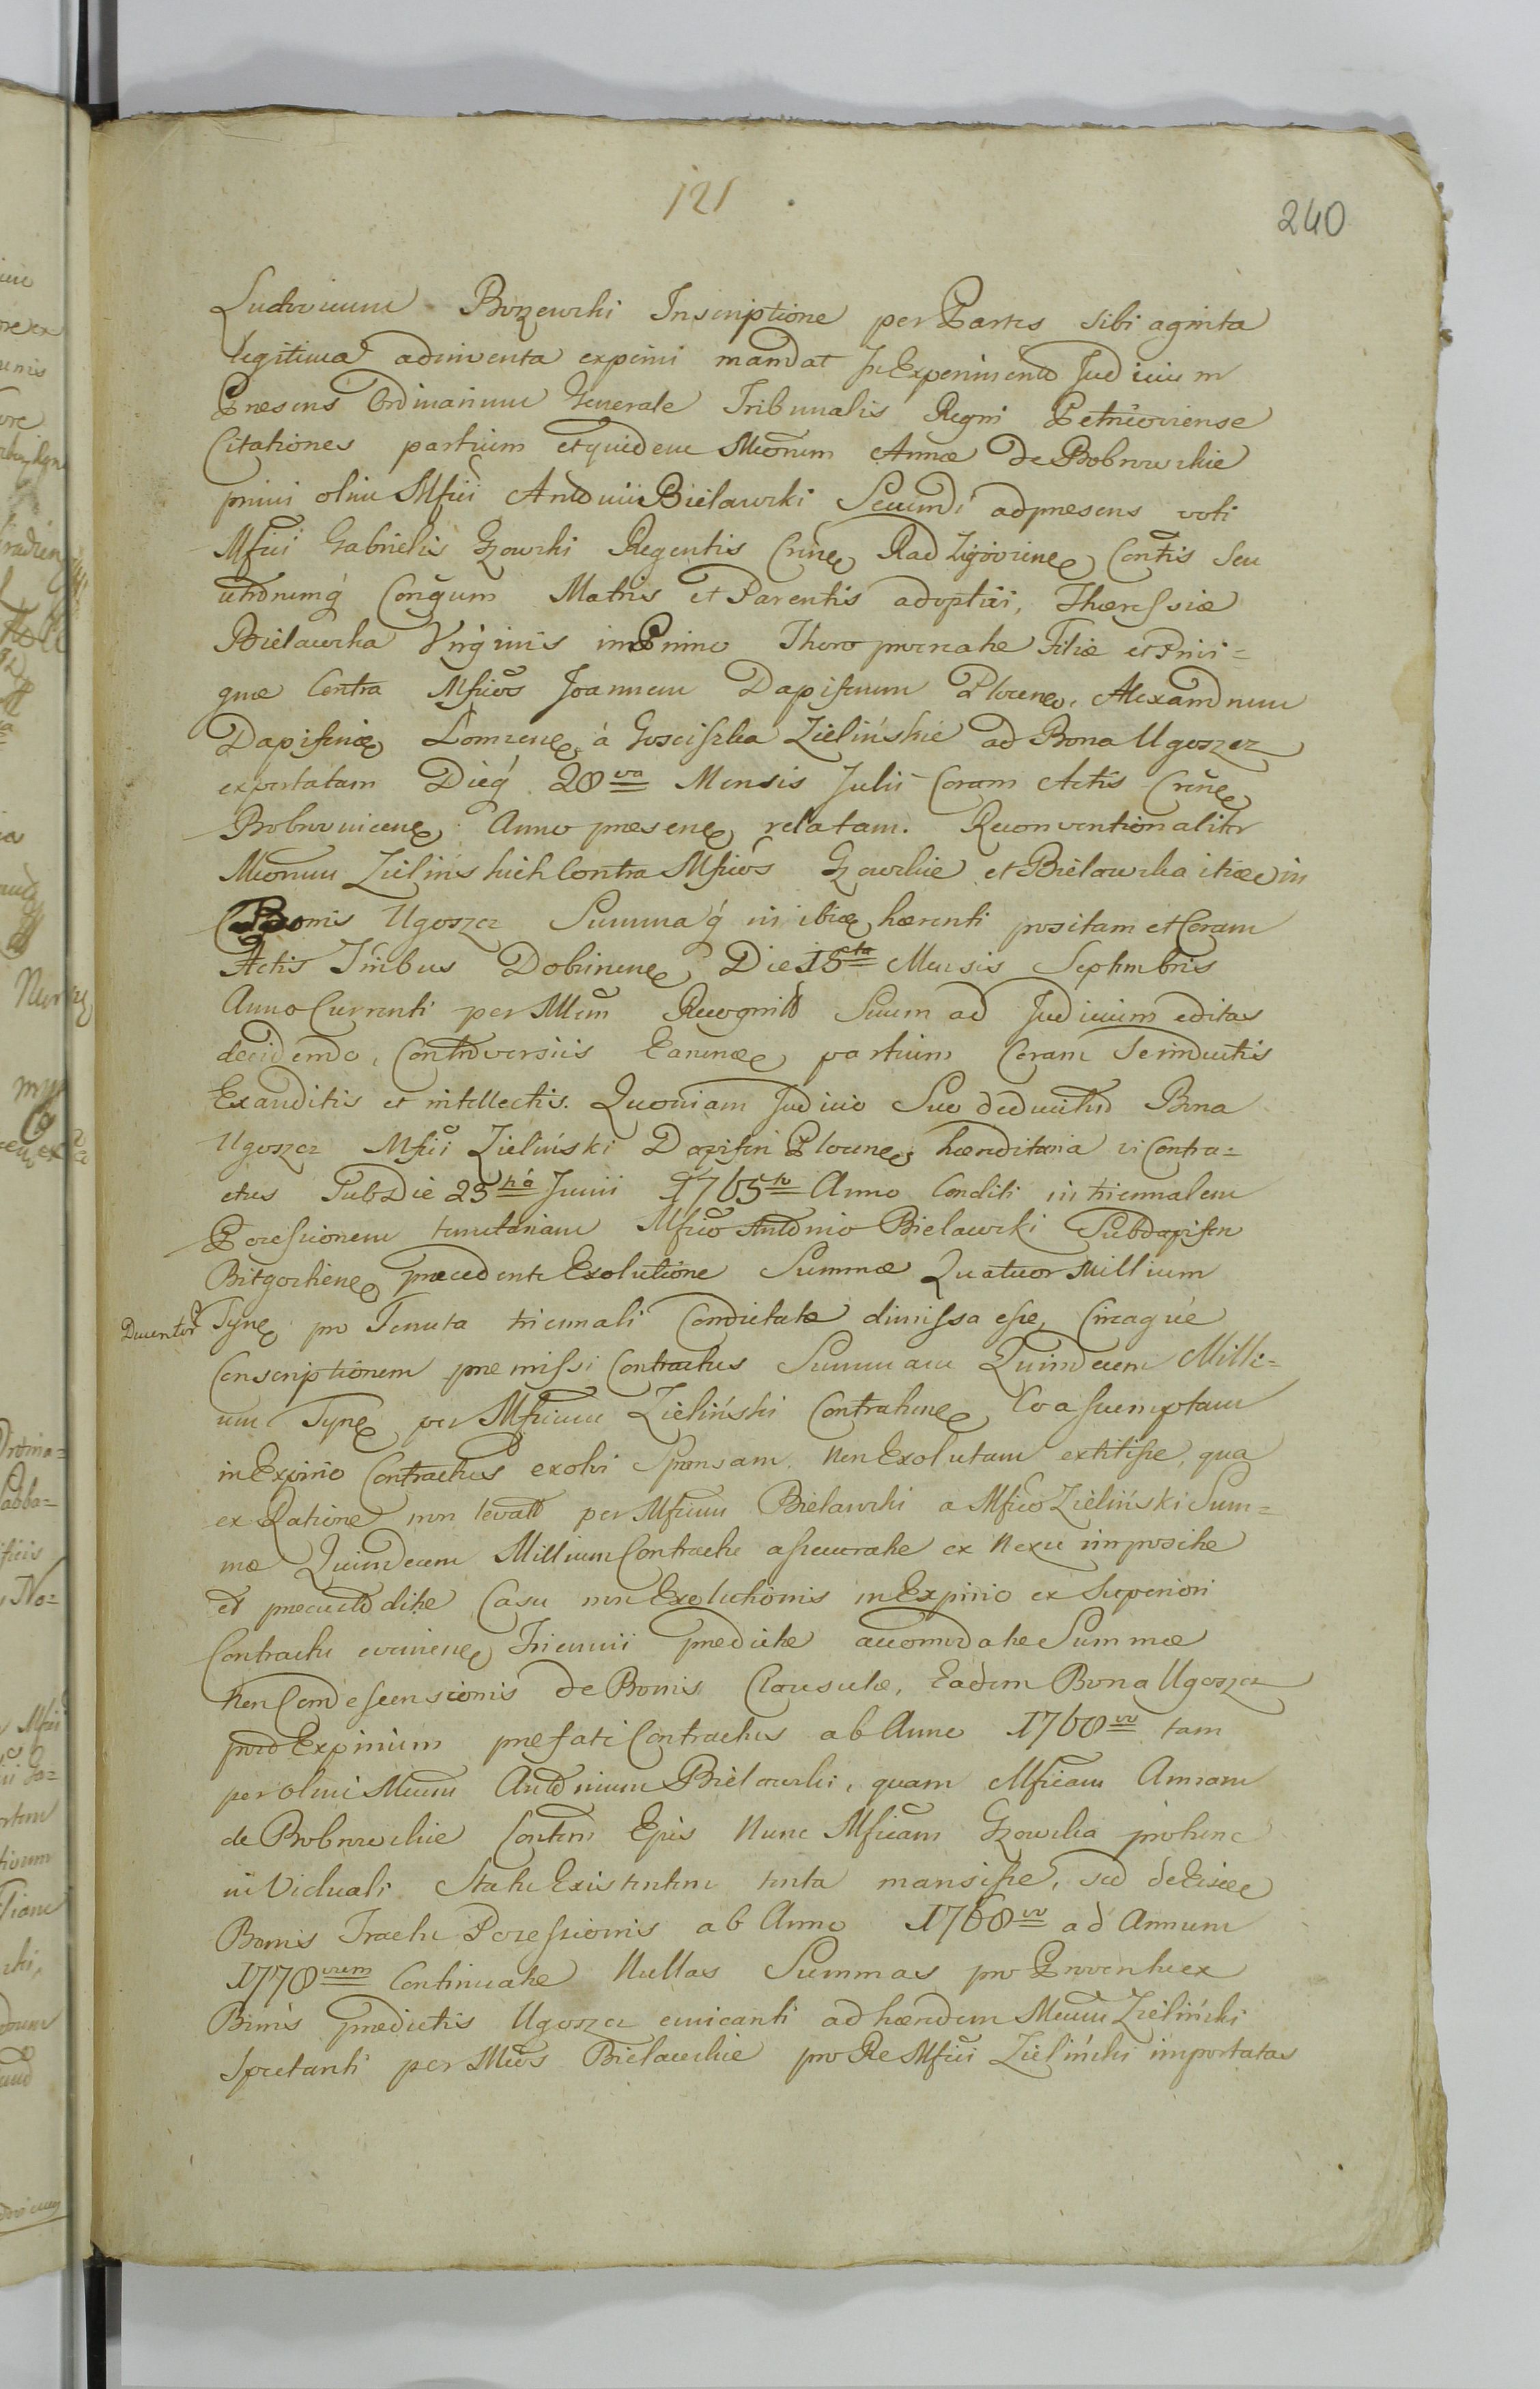 121
240
Ludovicum Borzewski Inscriptione per Partes sibi agnita
legitima adinventa expeniri mandat In Experimento Judicium
Præsens Ordinarium Generale Tribunalis Regni Petricoviense
Citationes partium et quidem Mcorum Annæ de Bobrowskie
primi olim Mfici Antonii Bielawski Secundi ad præsens voti
Mfici Gabrielis Gzowski Regentis Crine Radziijoviene Contis seu
utrorumq Congum Matris et Parentis adoptivi, Theressiæ
Bielawska Virginis in Primo Thoro procreatæ Filiæ et Privi=
gnæ Contra Mficos Joannem Dapiferum Plocene, Alexandrum
Dapiferidæ Lomzene, á Gosciszka Zieliński ad Bona Ugoszcz
exportatam Dieq 28va Mensis Julii Coram Actis Crene
Bobrovnicene Anno præsene relatam. Reconventionaliter
Mcorum Zielinskich Contra Mficos Gzowskie et Bielawska itide in
Bonis Ugoszcz Summaq in ibide hærenti positam et Coram
Actis Tribus Dobrinene Die 15ta Mensis Septembris
Anno Currenti per Mcum Recognito Suum ad Judicium editas
decidendo, Controversiis Earunde partium Coram Se inductis
Exauditis et intellectis. Quoniam Judicio Suo deducitur Bona
Ugoszcz Mfici Zieliński Dapiferi Plocene hæreditaria vi Contra=
ctus Sub Die 23tia Junii 1765to Anno Conditi in triennalem
Possessionem tenutariam Mfico Antonio Bielawski Subdapifero
Bidgostiene præcedente Exolutione Summæ Quatuor Millium
Ducentor Tyne pro Tenuta triennali Condictatæ dimissa esse, Circaque
Conscriptionem præmissi Contractus Summam Quindecem Milli=
um Tyne per Mficum Zieliński Contrahene Coassumptam
in Expirio Contractus exolvi Sponsam. Non Exolutam extitisse, qua
ex Ratione non levato per Mficum Bielawski a Mfico Zieliński Sum=
mæ Quindecem Millium Contractu assecuratæ ex Nexu impositæ
et præcustoditæ Casu non Exolutionis in Expirio ex Superiori
Contractu eveniene Triennii prædictæ accomodatæ Summæ
Non Condescensionis de Bonis Clausulæ, Eadem Bona Ugoszcz
post Expirium præfati Contractus ab Anno 1768vo tam
per olim Mcum Antonium Bielawski, quam Mficam Annam
de Bobrowskie Contem Ejus Nunc Mficam Gzowska pro tunc
in Viduali Statu Existentem tenta mansisse, sed de Eisde
Bonis Tractu Possessionis ab Anno 1768vo ad Annum
1770mum Continuatæ Nullas Summas pro Proventu ex
Bonis prædictis Ugoszcz emicanti ad hæredem Mcum Zieliński
Spectanti per Mcos Bielawskie pro Re Mfici Zieliński importatas